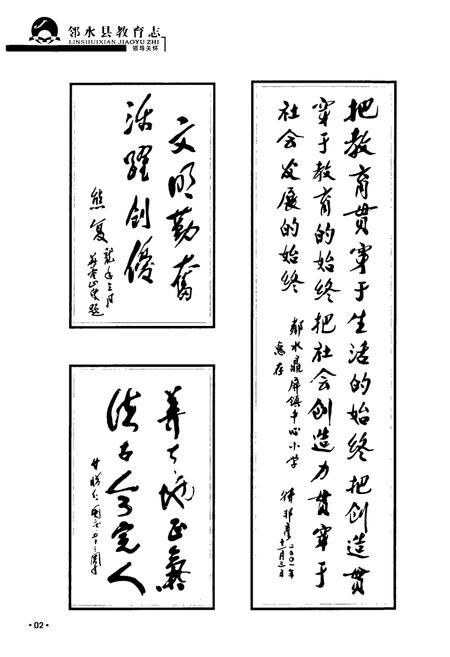 邻水县教育志
LINSHUIXIAN JIAOYU ZHI
领导关怀
把教育贯穿于生活的始终把创造贯
穿于教育的始终把社会创造力贯穿于
社会发展的始终
邻水鼎屏镇中心小学
惠存
二〇〇一年
十一月二日
文明勤奋
活跃创优
熊复
养天地正气
法古今完人
·02·